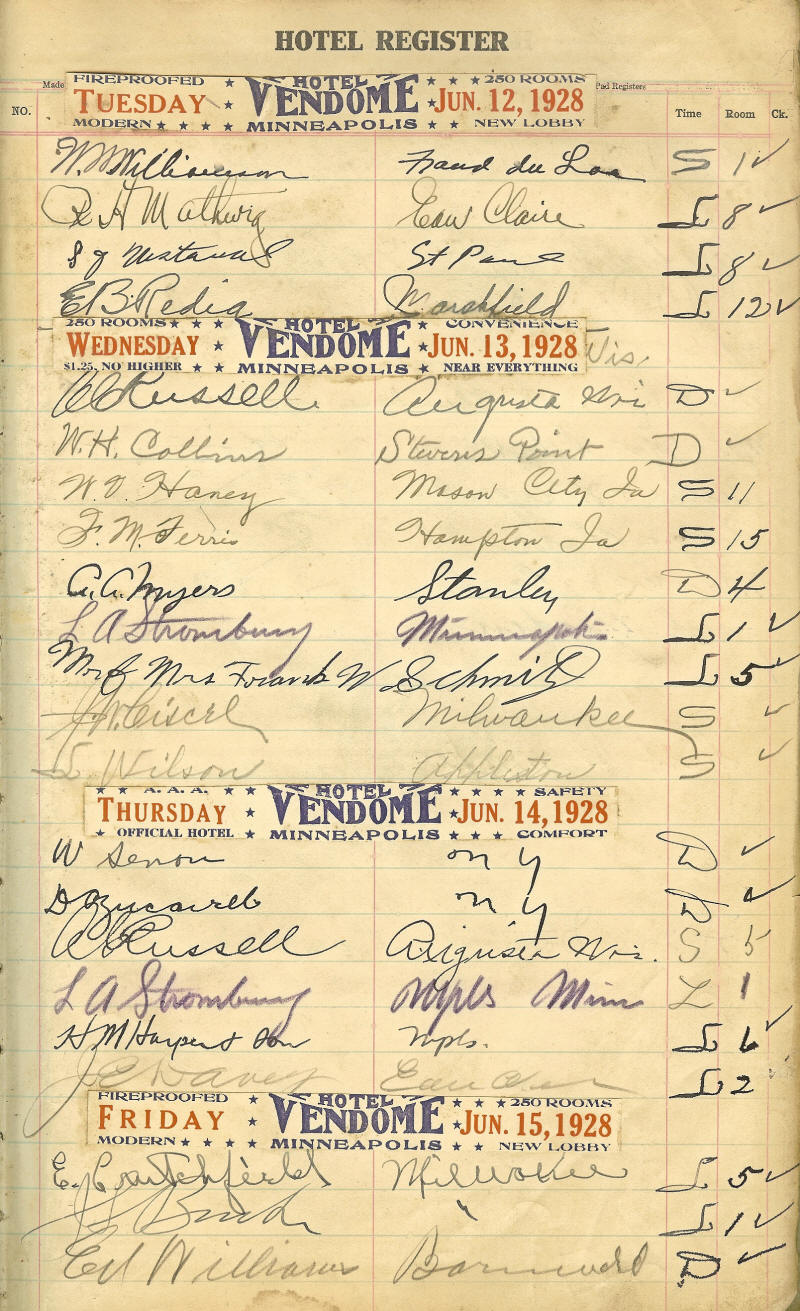 HOTEL REGISTER
Made Pad Registers
NO. Time Room Ck.
FIREPROOFED HOTEL 250 ROOMS
TUESDAY VENDOME JUN. 12, 1928
MODERN MINNEAPOLIS NEW LOBBY
W. Williamson Fond du Lac S 1 ✓
R H Mathwig Eau Claire L 8 ✓
S J St Paul L 8 ✓
E B Redig Marshfield L 12 ✓
250 ROOMS HOTEL CONVENIENCE
WEDNESDAY VENDOME JUN. 13, 1928 Wis.
$1.25, NO HIGHER MINNEAPOLIS NEAR EVERYTHING
Russell Augusta Wis D ✓
W. H. Collins Stevens Point D ✓
W. V. Haney Mason City Ia S 11
F. M. Ferris Hampton Ia S 15
A. A. Myers Stanley D 4
L A Stromburg Minneapolis L 1 ✓
Mr & Mrs Frank W Schmitz L 5 ✓
J. W. Cisel Milwaukee S ✓
L Wilson Appleton S ✓
A. A. A. HOTEL SAFETY
THURSDAY VENDOME JUN. 14, 1928
OFFICIAL HOTEL MINNEAPOLIS COMFORT
W Senon n y D ✓
D n y D ✓
Russell Augusta Wis. S 5
L A Stromburg Mpls Minn L 1
H M Harper & Son Mpls. L 6 ✓
J E Davey Eau Claire L 2
FIREPROOFED HOTEL 250 ROOMS
FRIDAY VENDOME JUN. 15, 1928
MODERN MINNEAPOLIS NEW LOBBY
E. Crutchfield Milwokee L 5 ✓
J " L 1 ✓
Ed Williams D ✓